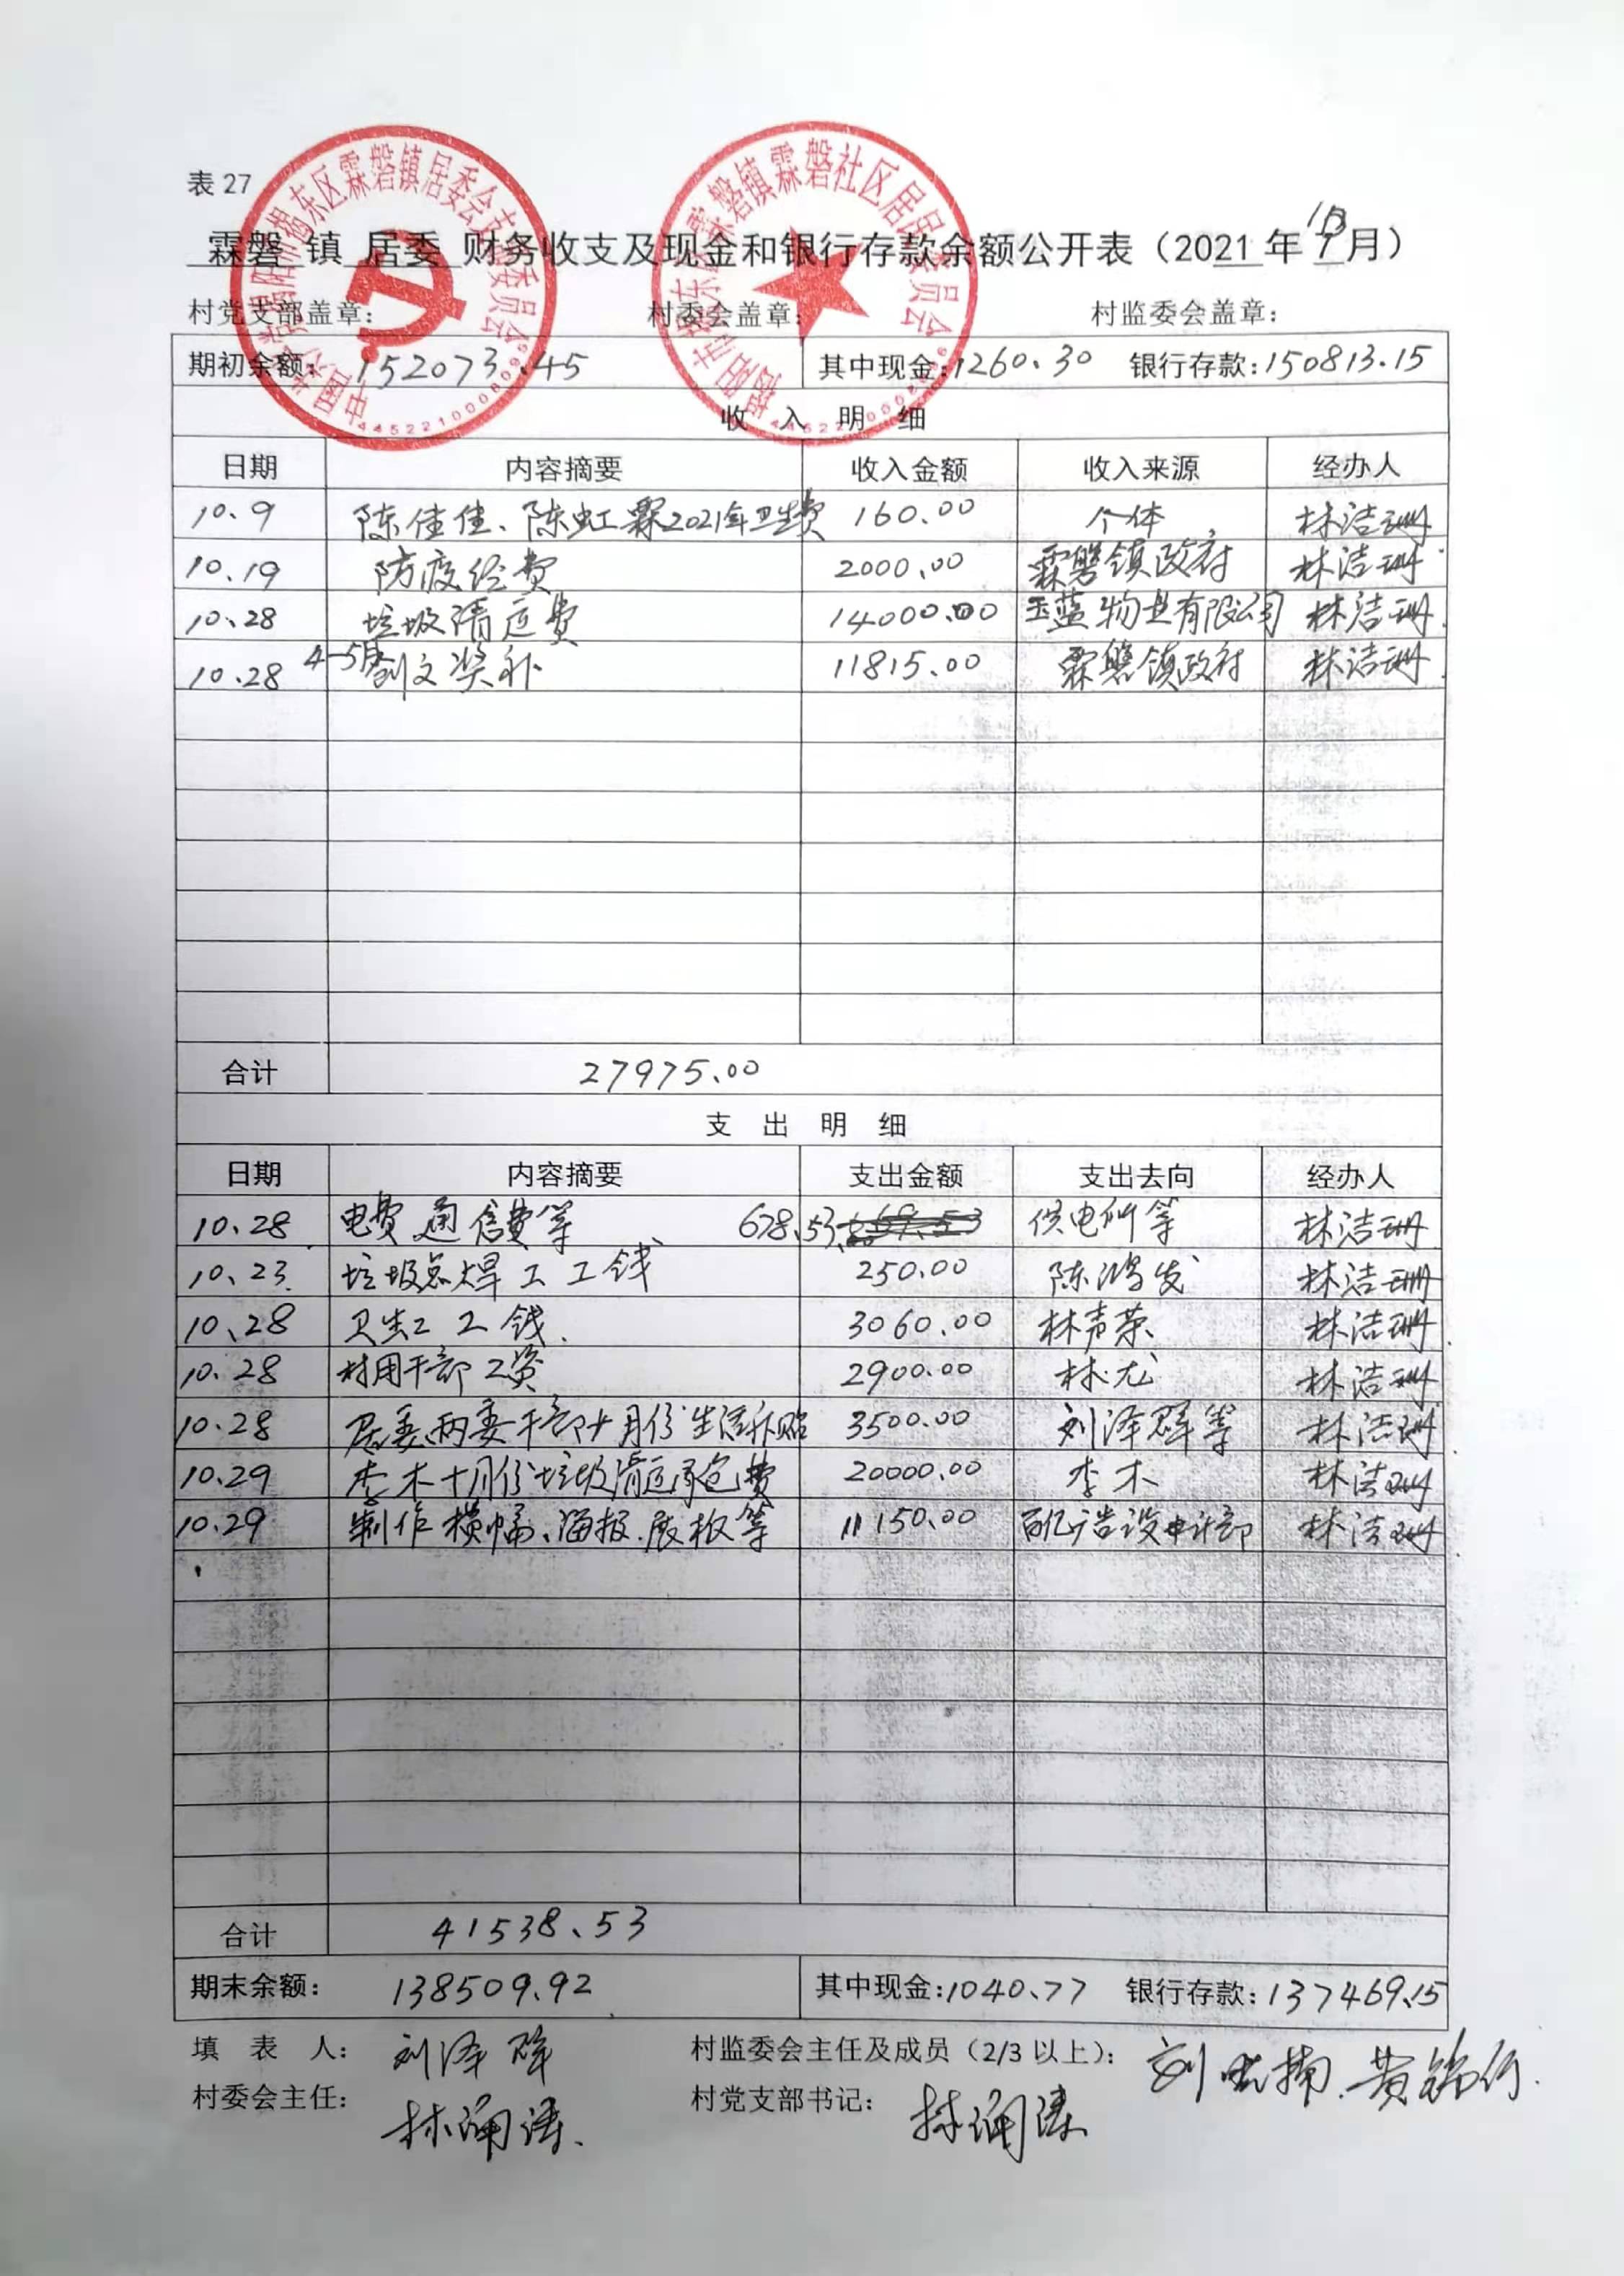 表 27
霖磐 镇 居委 财务收支及现金和银行存款余额公开表（2021 年 10 月）
村党支部盖章： 村委会盖章： 村监委会盖章：
期初余额： 152073.45 其中现金：1260.30 银行存款：150813.15
收 入 明 细
日期 内容摘要 收入金额 收入来源 经办人
10.9 陈佳佳、陈虹霖2021年卫生费 160.00 个体 林洁珊
10.19 防疫经费 2000.00 霖磐镇政府 林洁珊
10.28 垃圾清运费 14000.00 玉蓝物业有限公司 林洁珊
10.28 4-5月创文奖补 11815.00 霖磐镇政府 林洁珊
合计 27975.00
支 出 明 细
日期 内容摘要 支出金额 支出去向 经办人
10.28 电费通信费等 678.53 供电所等 林洁珊
10.23 垃圾点焊工工钱 250.00 陈鸿发 林洁珊
10.28 卫生工工钱 3060.00 林声荣 林洁珊
10.28 村用干部工资 2900.00 林龙 林洁珊
10.28 居委两委干部十月份生活补贴 3500.00 刘泽群等 林洁珊
10.29 李木十月份垃圾清运承包费 20000.00 李木 林洁珊
10.29 制作横幅、海报.展板等 11150.00 广告设计部 林洁珊
合计 41538.53
期末余额： 138509.92 其中现金：1040.77 银行存款：137469.15
填 表 人： 刘泽群 村监委会主任及成员（2/3 以上）： 刘 黄
村委会主任： 林涌涛 村党支部书记： 林涌涛